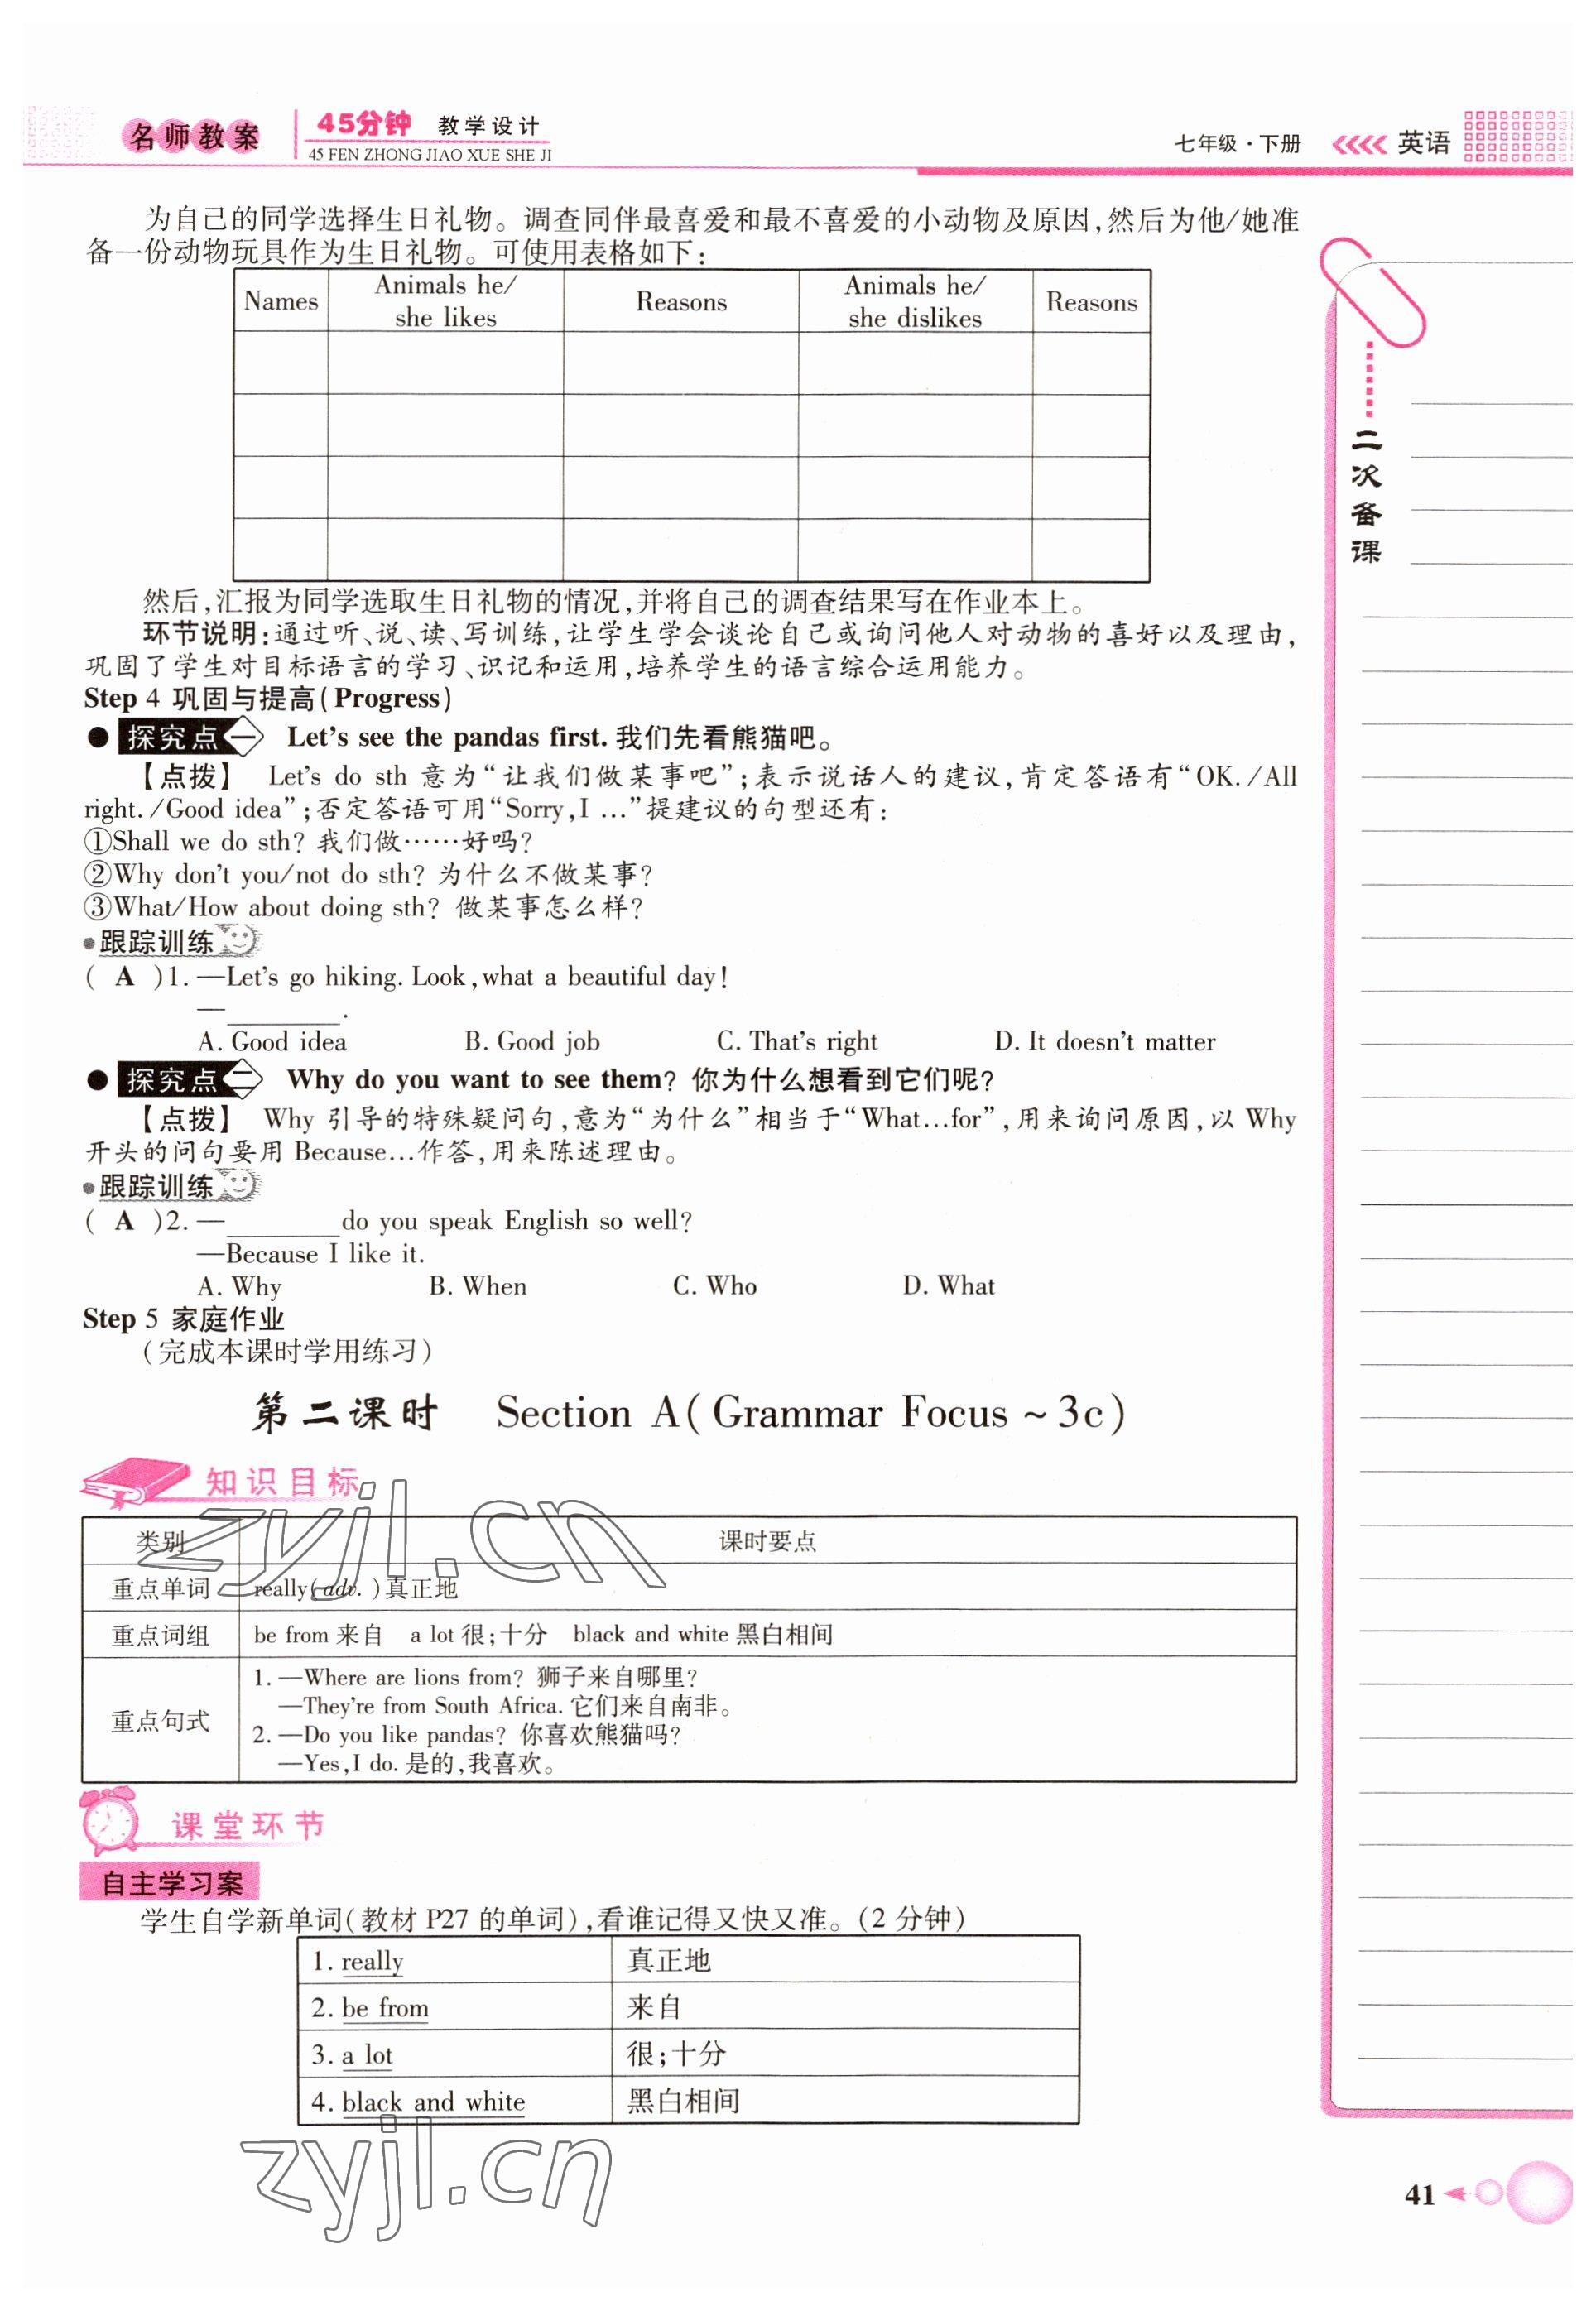 名师教案 45分钟 教学设计
45 FEN ZHONG JIAO XUE SHE JI
七年级·下册 英语
为自己的同学选择生日礼物。调查同伴最喜爱和最不喜爱的小动物及原因,然后为他/她准
备一份动物玩具作为生日礼物。可使用表格如下:
Names Animals he/she likes Reasons Animals he/she dislikes Reasons
然后,汇报为同学选取生日礼物的情况,并将自己的调查结果写在作业本上。
环节说明:通过听、说、读、写训练,让学生学会谈论自己或询问他人对动物的喜好以及理由,
巩固了学生对目标语言的学习、识记和运用,培养学生的语言综合运用能力。
Step 4 巩固与提高(Progress)
● 探究点一 Let's see the pandas first. 我们先看熊猫吧。
【点拨】 Let's do sth 意为“让我们做某事吧”;表示说话人的建议,肯定答语有“OK./All
right./Good idea”;否定答语可用“Sorry,I …”提建议的句型还有:
①Shall we do sth? 我们做……好吗?
②Why don't you/not do sth? 为什么不做某事?
③What/How about doing sth? 做某事怎么样?
跟踪训练
( A )1. —Let's go hiking. Look,what a beautiful day!
—________.
A. Good idea B. Good job C. That's right D. It doesn't matter
● 探究点二 Why do you want to see them? 你为什么想看到它们呢?
【点拨】 Why 引导的特殊疑问句,意为“为什么”相当于“What…for”,用来询问原因,以 Why
开头的问句要用 Because…作答,用来陈述理由。
跟踪训练
( A )2. —________do you speak English so well?
—Because I like it.
A. Why B. When C. Who D. What
Step 5 家庭作业
(完成本课时学用练习)
第二课时 Section A(Grammar Focus~3c)
知识目标
类别 课时要点
重点单词 really(adv.)真正地
重点词组 be from 来自 a lot 很;十分 black and white 黑白相间
重点句式
1. —Where are lions from? 狮子来自哪里?
—They're from South Africa. 它们来自南非。
2. —Do you like pandas? 你喜欢熊猫吗?
—Yes,I do. 是的,我喜欢。
课堂环节
自主学习案
学生自学新单词(教材 P27 的单词),看谁记得又快又准。(2 分钟)
1. really 真正地
2. be from 来自
3. a lot 很;十分
4. black and white 黑白相间
二次备课
41
zyjl.cn
zyjl.cn